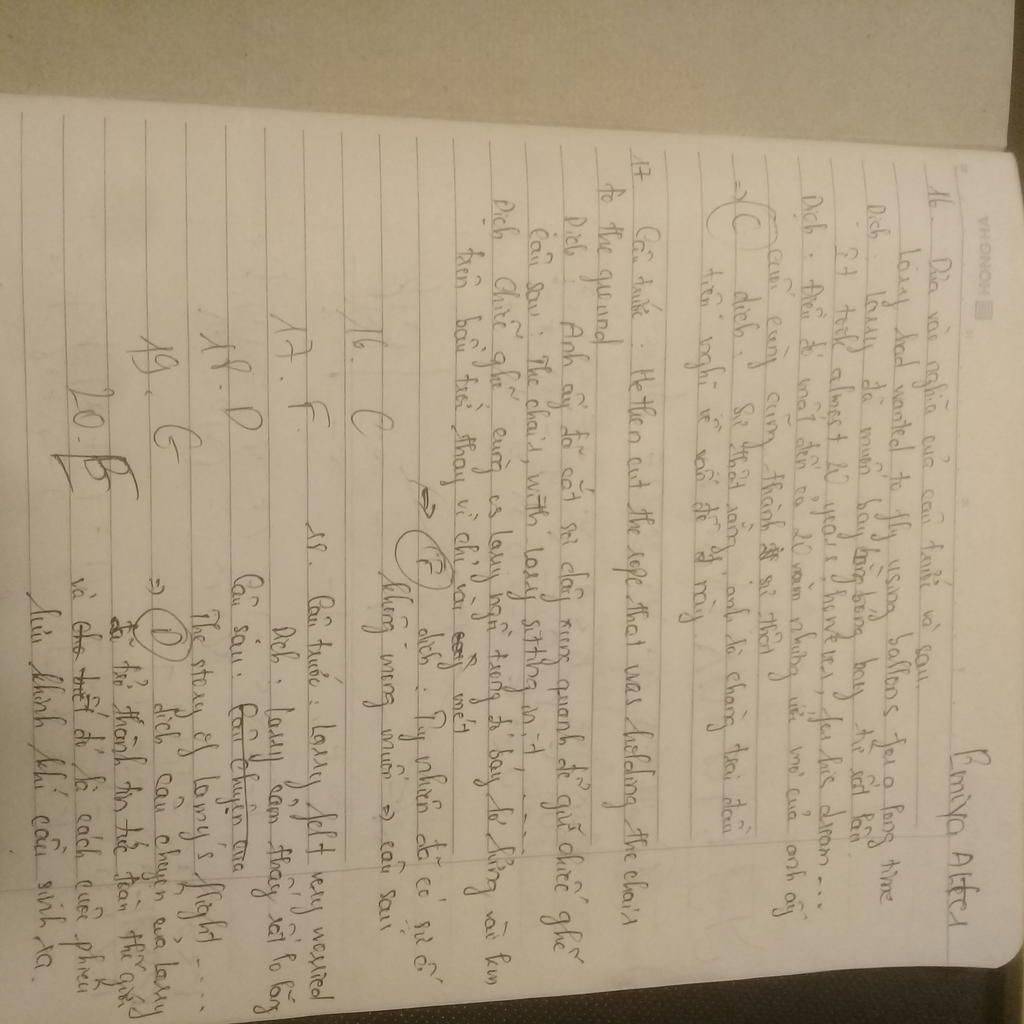 HONGHA
Emiya Alter
16. Dựa vào nghĩa của câu trước và sau.
Larry had wanted to fly using ballons for a long time
Dịch: Larry đã muốn bay bằng bóng bay từ rất lâu.
It took almost 20 years, however, for his dream...
Dịch: Điều đó mất đến cả 20 năm nhưng ước mơ của anh ấy
cuối cùng cũng thành sự thật
=> C dịch: sự thật rằng, anh là chàng trai đầu
tiên nghĩ về vấn đề này.
17 Câu trước: He then cut the rope that was holding the chair
to the ground
Dịch: Anh ấy đã cắt sợi dây xung quanh để giữ chiếc ghế
Câu sau: The chair, with Larry sitting in it,.....
Dịch: Chiếc ghế cùng vs Larry ngồi trong đó bay lơ lửng vài km
trên bầu trời thay vì chỉ vài mét
=> F dịch: Tuy nhiên đã có sự cố
không mong muốn => câu sau
16. C
17. F
18. D
19. G
20. B
18. Câu trước: Larry felt very worried
Dịch: Larry cảm thấy rất lo lắng
Câu sau: Câu chuyện của
The story of Larry's flight.....
=> D dịch câu chuyện của Larry
đã trở thành tin tức toàn thế giới
và đó là cách cuộc phiêu
lưu khinh khí cầu sinh ra.